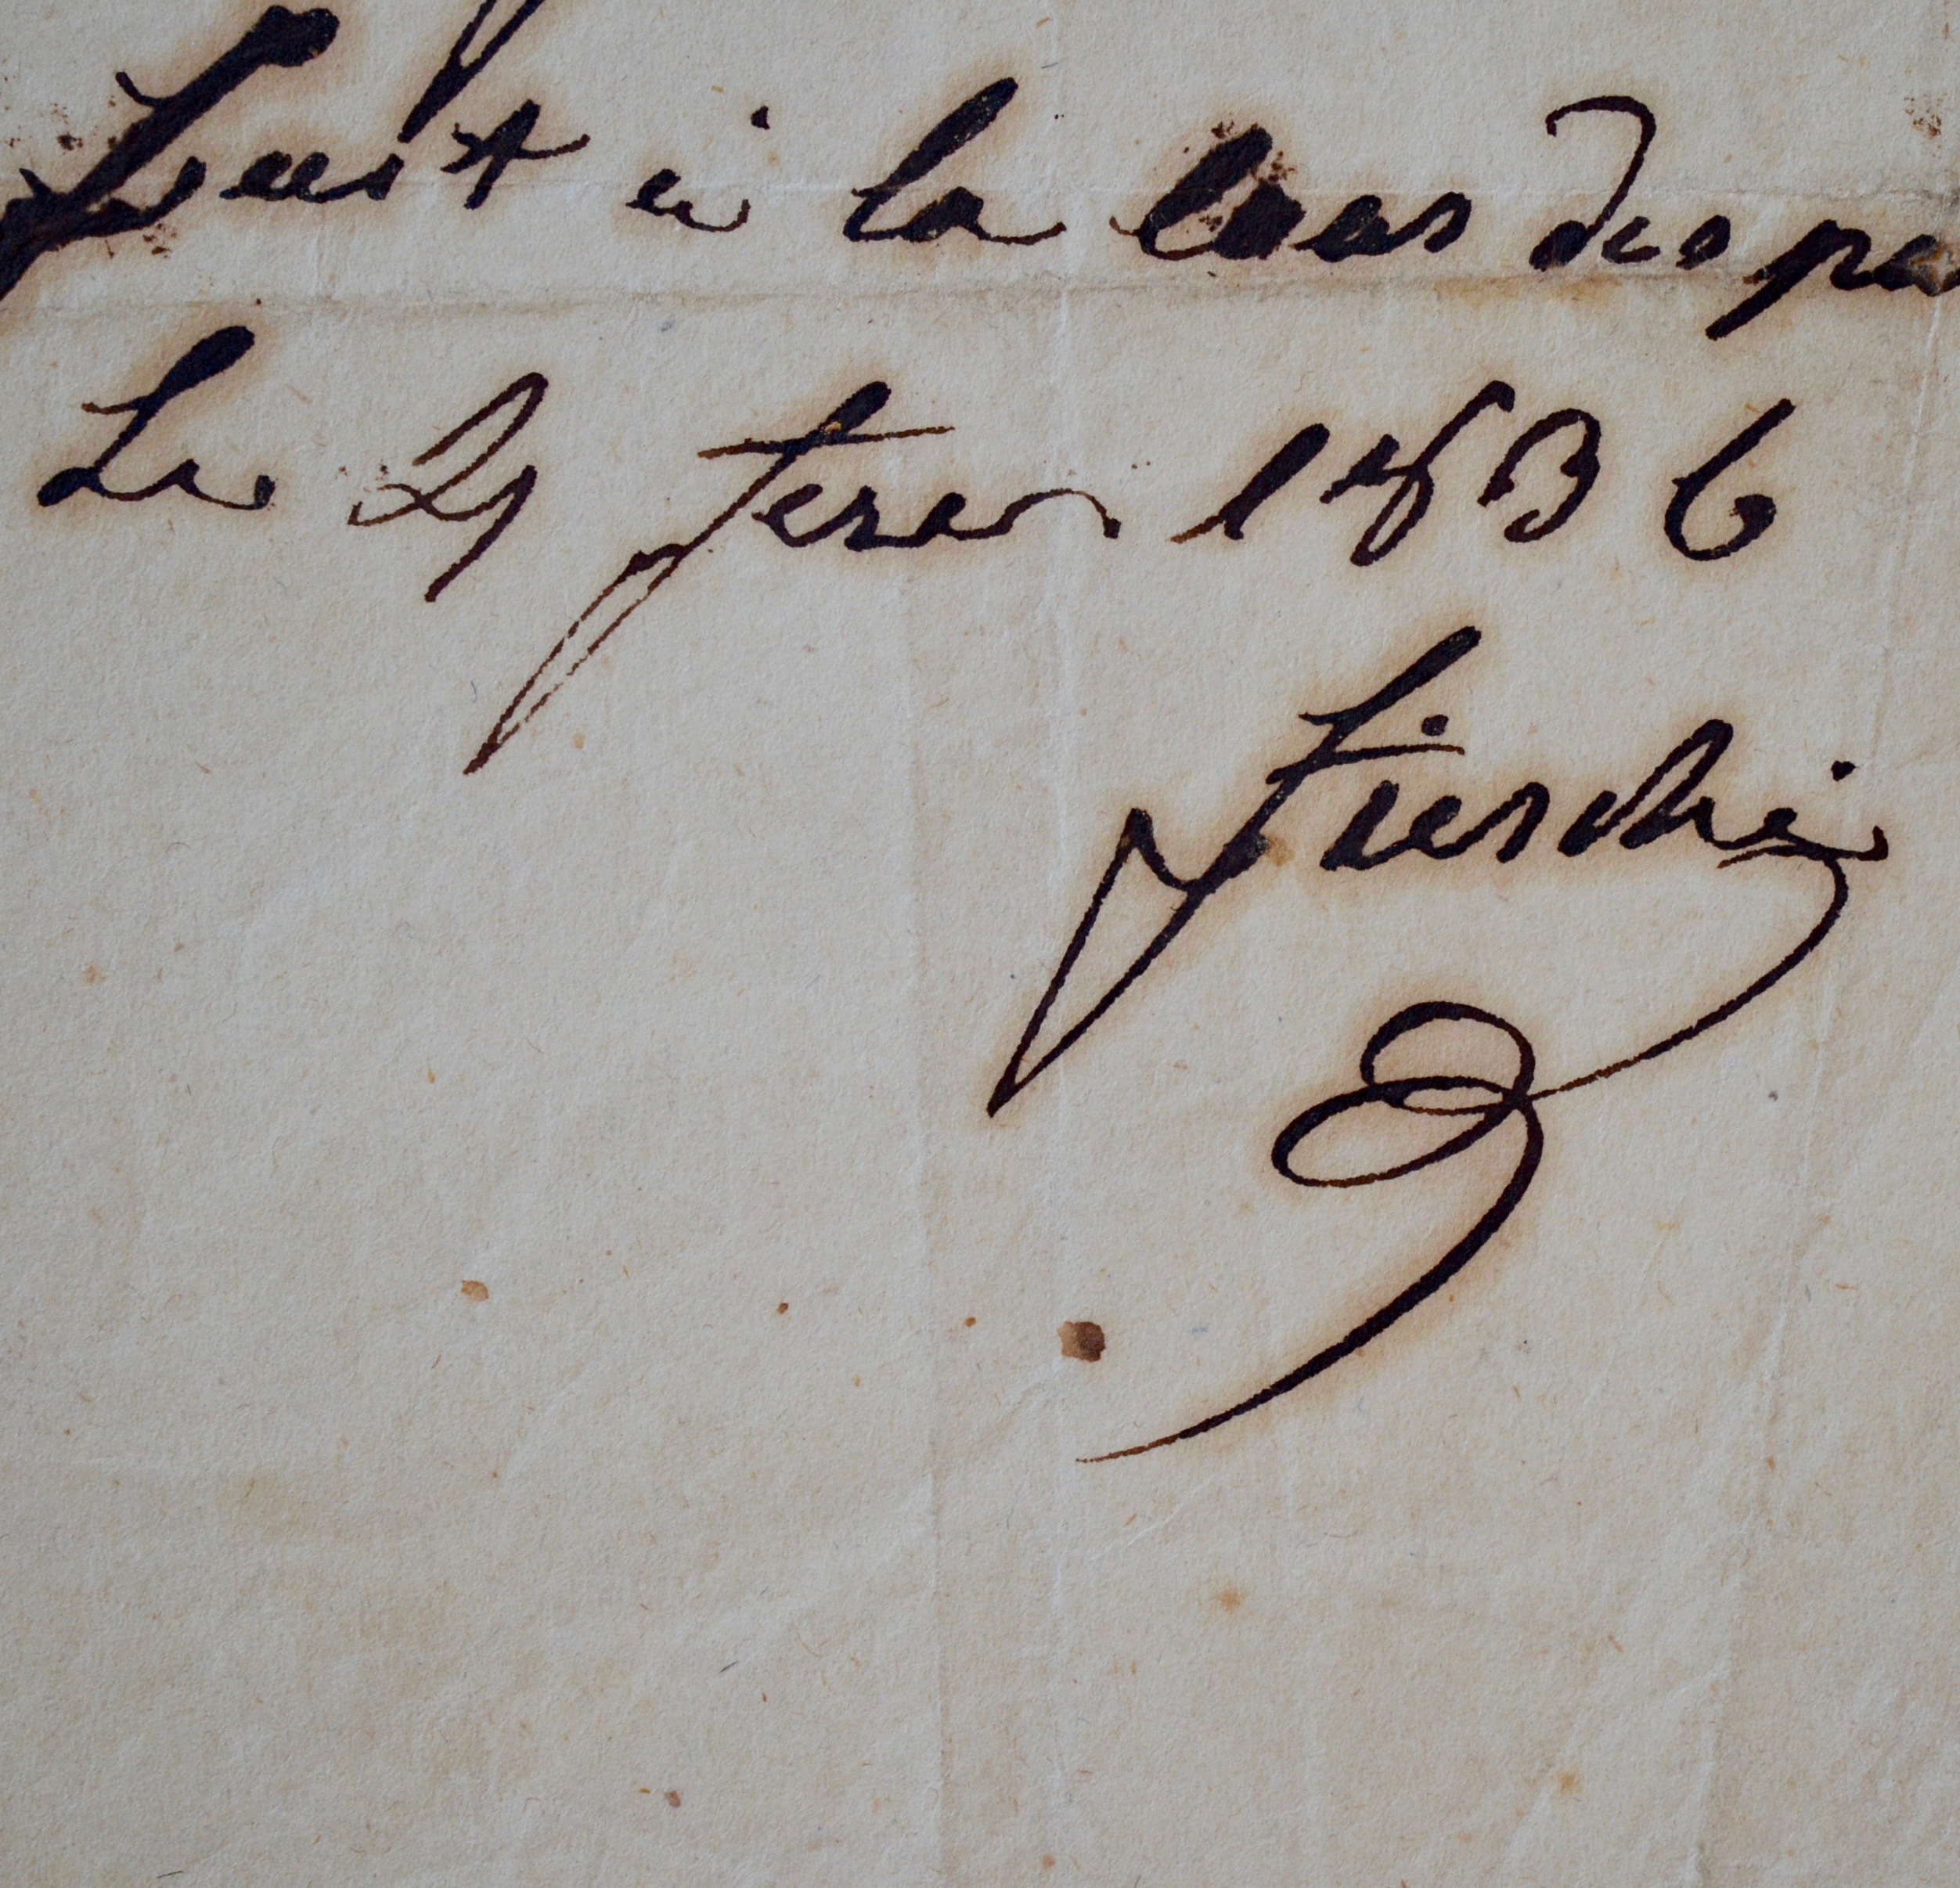 Fait à la Cour des pa
Le 4 1836
Fieschi